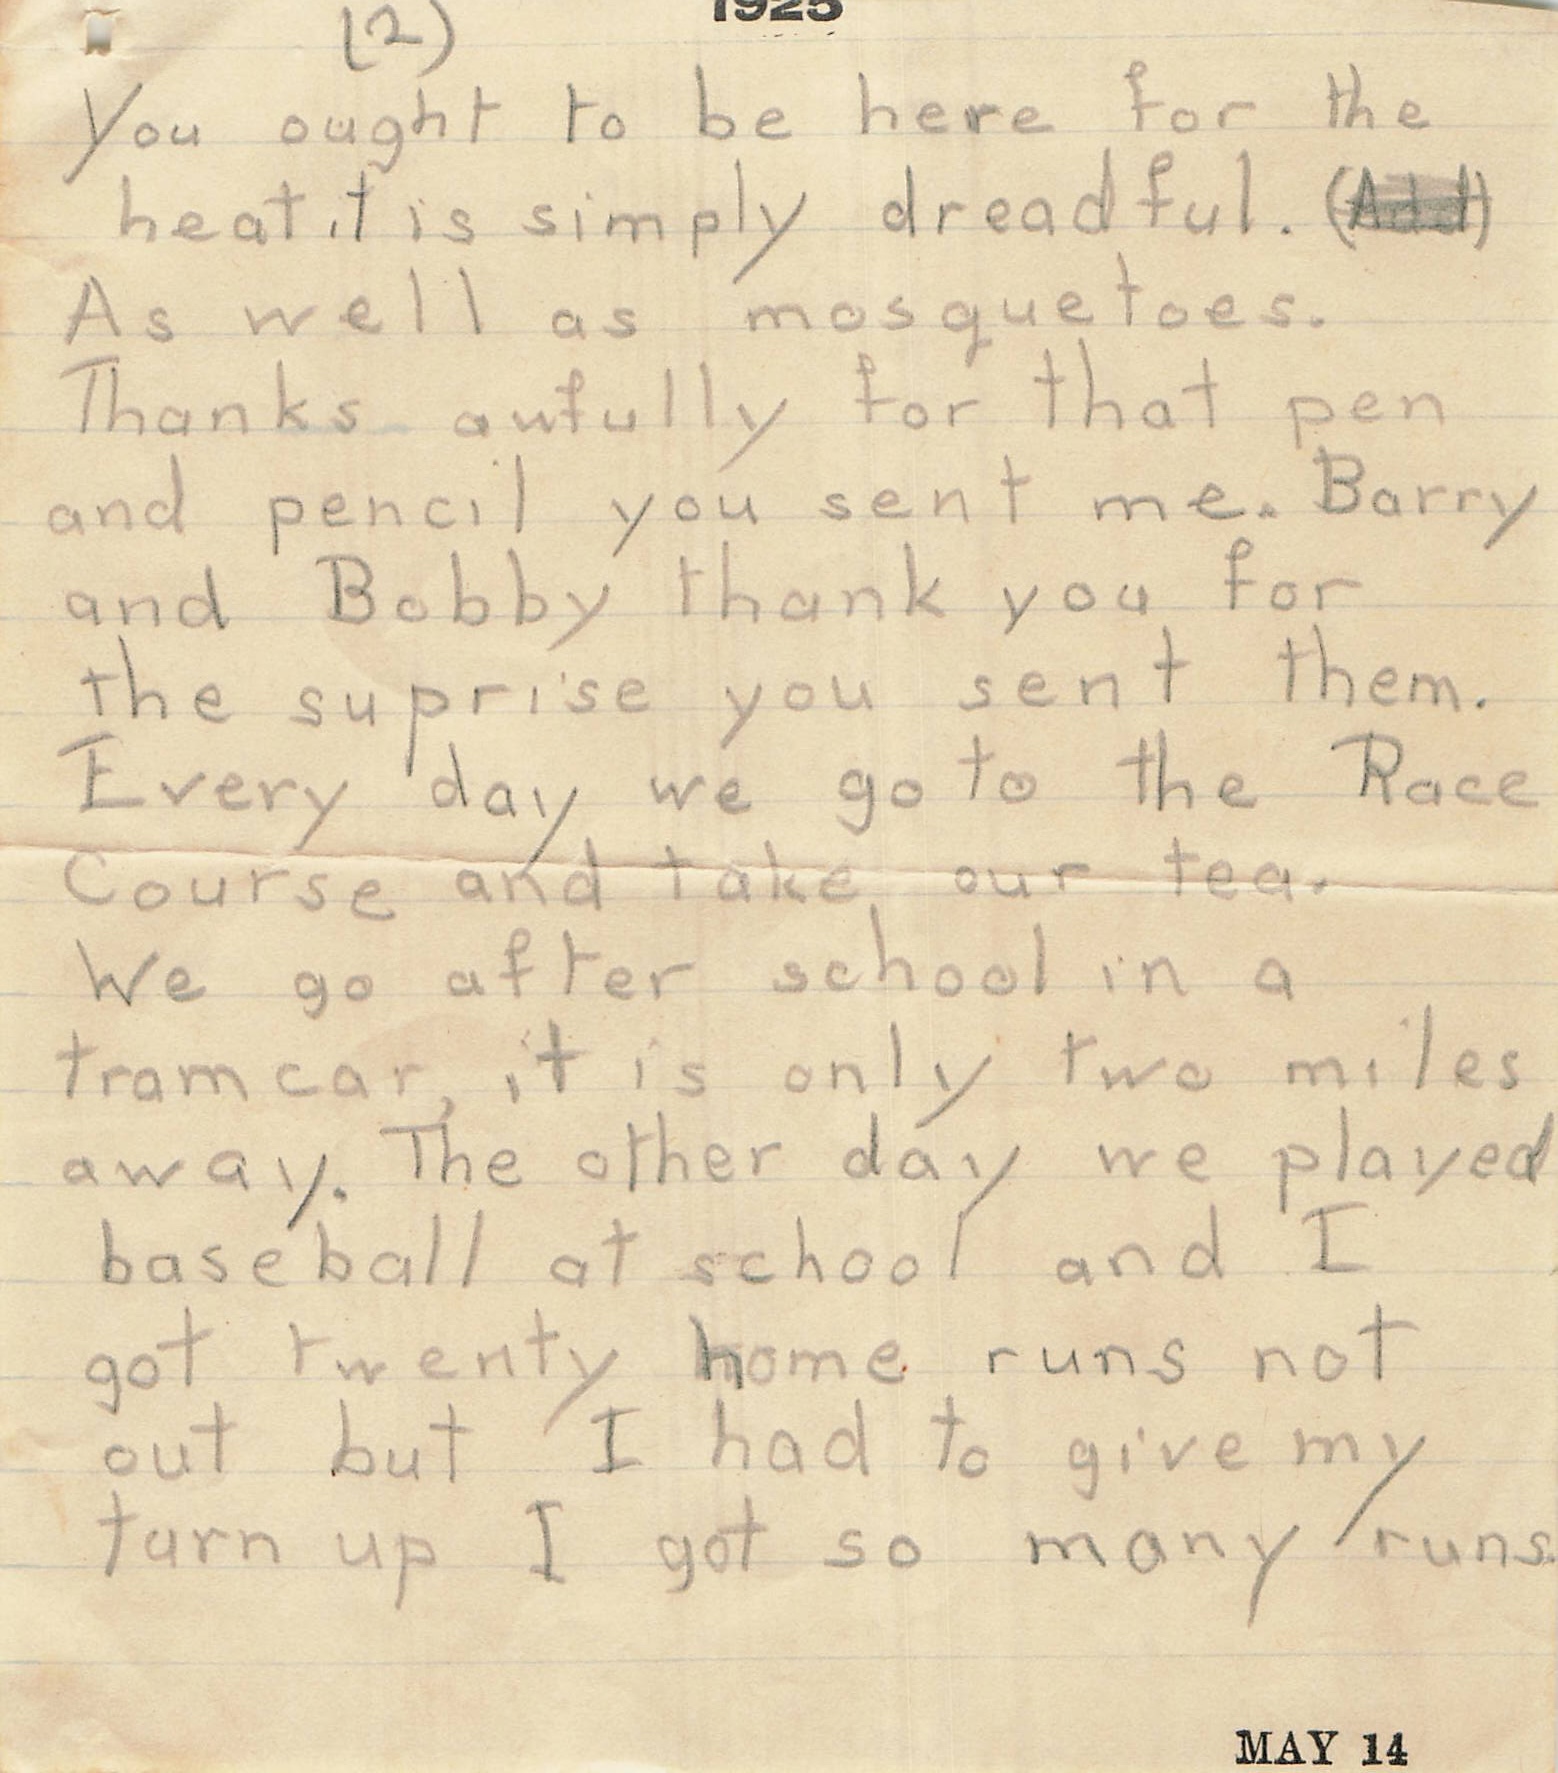 1925
(2)
You ought to be here for the
heat it is simply dreadful. (Add)
As well as mosquetoes.
Thanks awfully for that pen
and pencil you sent me. Barry
and Bobby thank you for
the suprise you sent them.
Every day we go to the Race
Course and take our tea.
We go after school in a
tramcar, it is only two miles
away. The other day we played
baseball at school and I
got twenty home runs not
out but I had to give my
turn up I got so many runs.
MAY 14